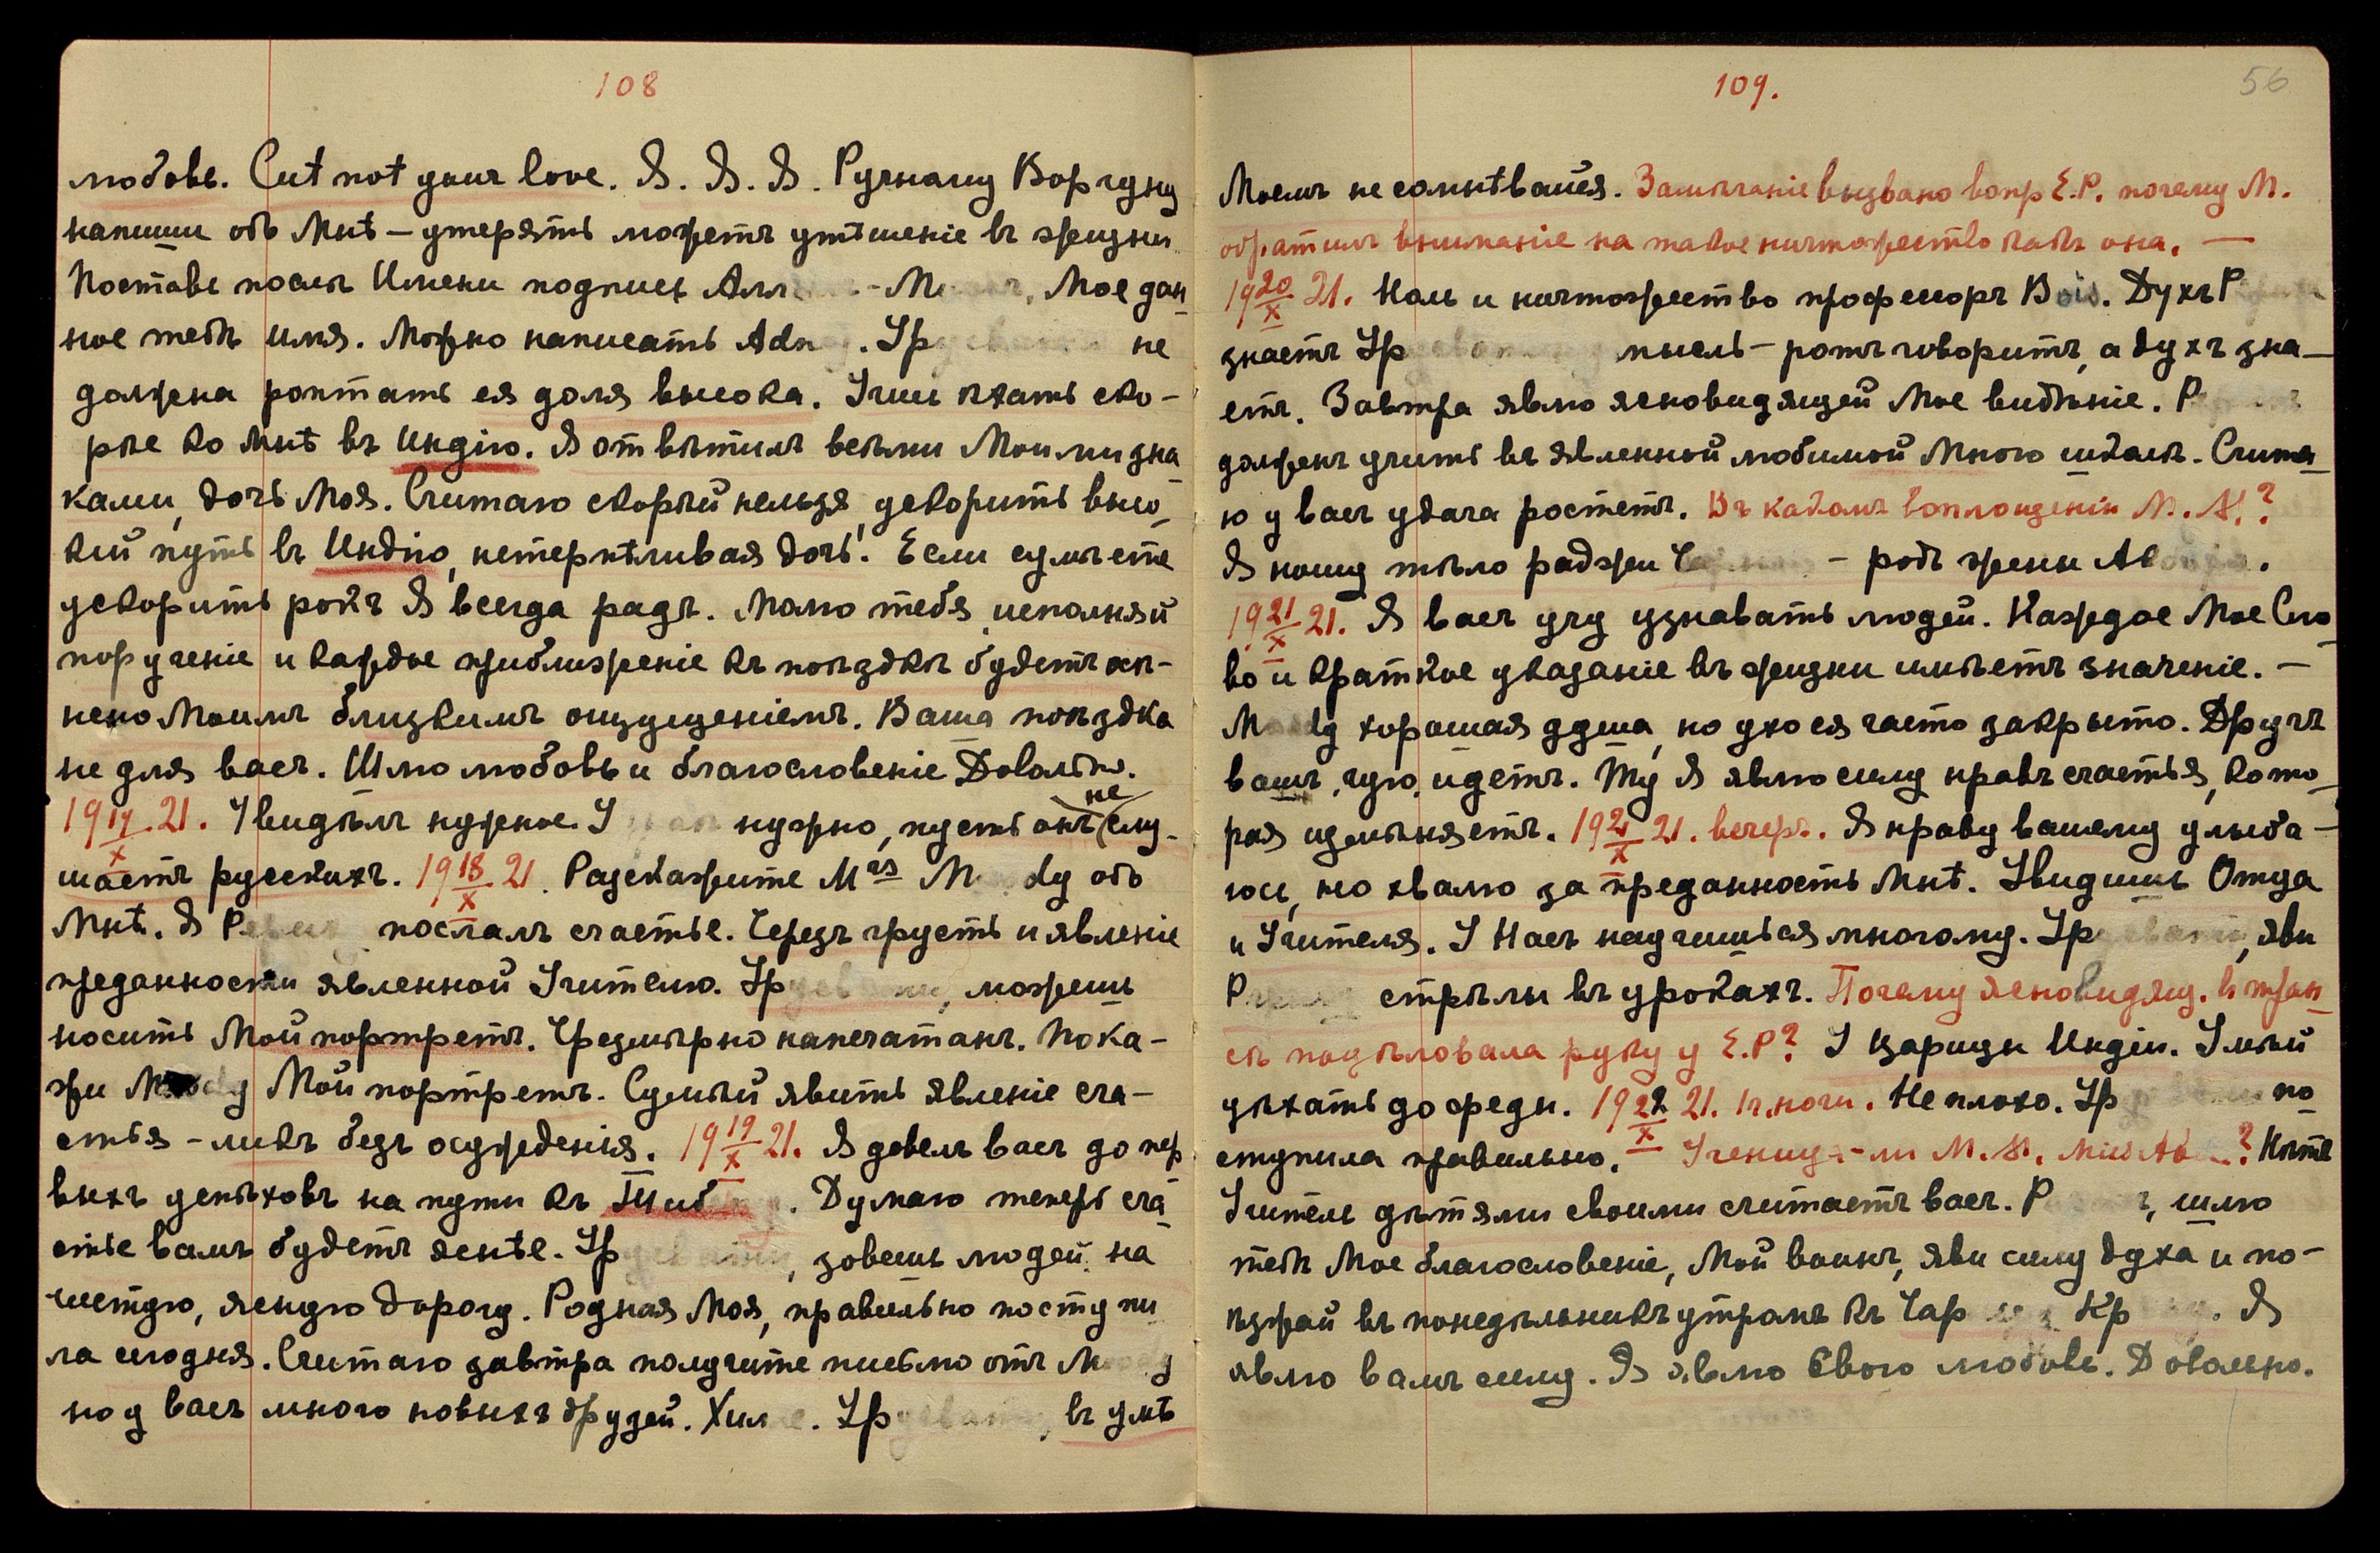 108
любовь. Cut not your love. Я. Я. Я. Ручному Ворчуну
напиши объ Мнѣ – утерять можетъ утѣшеніе въ жизни
Поставь послѣ Имени подпись Алл - М , Мое дан
ное тебѣ имя. Можно написать Adn . Ур не
должна роптать ея доля высока. Учись ѣхать ско-
рѣе ко Мнѣ въ Индію. Я отвѣтилъ всѣми Моими зна
ками, дочь Моя. Считаю скорѣй нельзя ускорить высо
кій путь въ Индію, нетерпѣливая дочь. Если сумѣете
ускорить рокъ Я всегда радъ. Молю тебя исполняй
порученіе и каждое приближеніе къ поѣздкѣ будетъ оцѣ-
нено Моимъ близкимъ ощущеніемъ. Ваша поѣздка
не для васъ. Шлю любовь и благословеніе Довольно.
19 17/X 21. Увидѣлъ нужное. У нужно, пусть онъ не слу-
шаетъ русскихъ. 19 18/X 21. Разскажите Mrs M dy объ
Мнѣ. Я Р послалъ счастье. Черезъ грусть и явленіе
преданности явленной Учителю. Ур , можешь
носить Мой портретъ. Чрезмѣрно напечатанъ. Пока-
жи M dy Мой портретъ. Сумѣй явить явленіе сча-
стья – ликъ безъ осужденія. 19 19/X 21. Я довелъ васъ до пер
выхъ успѣховъ на пути къ Тиб . Думаю теперь сча
стье вамъ будетъ яснѣе. Ур , зовешь людей на
чистую, ясную дорогу. Родная Моя, правильно поступи
ла сегодня. Считаю завтра получите письмо отъ M y
но у васъ много новыхъ друзей. Хил . Ур , въ умѣ
109.
56
Моемъ не сомнѣвайся. Замѣчаніе вызвано вопр Е.Р. почему М.
обратилъ вниманіе на такое ничтожество какъ она. —
19 20/X 21. Ноль и ничтожество профессоръ Bois. Духъ Р
знаетъ Ур мысль – ротъ говоритъ, а духъ зна-
етъ. Завтра явлю ясновидящей Мое видѣніе. Р
долженъ учить въ явленной любимой Мною школѣ. Счита
ю у васъ удача ростетъ. Въ какомъ воплощеніи М. М.?
Я ношу тѣло раджи – родъ жены Ак .
19 21/X 21. Я васъ учу узнавать людей. Каждое Мое Сло
во и краткое указаніе въ жизни имѣетъ значеніе. —
M dy хорошая душа, но ухо ея часто закрыто. Другъ
вашъ, чую, идетъ. Ту Я явлю силу нравъ счастья, кото
рая измѣняетъ. 19 21/X 21. вечеръ. Я нраву вашему улыба-
юсь, но хвалю за преданность Мнѣ. Увидишь Отца
и Учителя. У Насъ научишься многому. Ур , яви
Р стрѣлы въ урокахъ. Почему ясновидящ. въ тран
сѣ поцѣловала руку у Е.Р? У Царицы Индіи. Умѣй
уѣхать до среды. 19 22/X 21. 1 ч. ночи. Не плохо. Ур по
ступила правильно. — Ученица-ли М. М. miss Ab ? Нѣтъ
Учитель дѣтями своими считаетъ васъ. Р , шлю
тебѣ Мое благословеніе, Мой воинъ, яви силу духа и по-
ѣзжай въ понедѣльникъ утромъ къ Чар Кр . Я
явлю вамъ силу. Я явлю Свою любовь. Довольно.